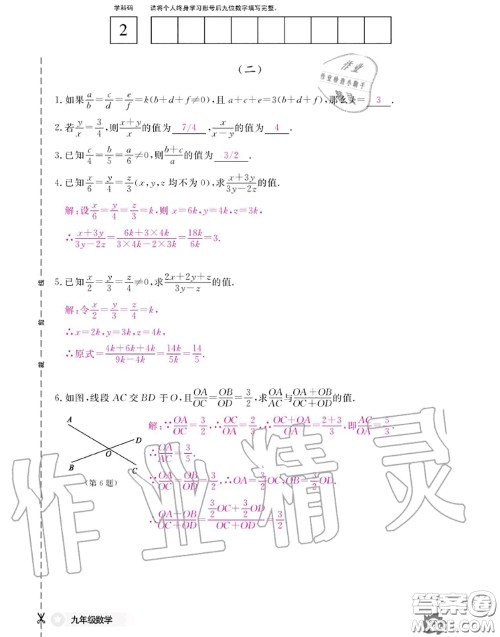 学科码 请将个人终身学习账号后九位数字填写完整。
2
(二)
1. 如果a/b=c/d=e/f=k(b+d+f≠0),且a+c+e=3(b+d+f),那么k= 3 .
2. 若y/x=3/4,则(x+y)/x的值为 7/4 ,x/(x-y)的值为 4 .
3. 已知c/4=b/5=a/6≠0,则(b+c)/a的值为 3/2 .
4. 已知x/6=y/4=z/3(x,y,z均不为0),求(x+3y)/(3y-2z)的值.
解:设x/6=y/4=z/3=k,则x=6k,y=4k,z=3k,
∴(x+3y)/(3y-2z)=(6k+3×4k)/(3×4k-2×3k)=18k/6k=3.
5. 已知x/2=y/3=z/4≠0,求(2x+2y+z)/(3y-z)的值.
解:令x/2=y/3=z/4=k,
∴x=2k,y=3k,z=4k,
∴原式=(4k+6k+4k)/(9k-4k)=14k/5k=14/5.
6. 如图,线段AC交BD于O,且OA/OC=OB/OD=3/2,求OA/AC与(OA+OB)/(OC+OD)的值.
解:∵OA/OC=3/2,∴OC/OA=2/3,∴(OC+OA)/OA=(2+3)/3,即AC/OA=5/3,
∴OA/AC=3/5.
∵OA/OC=OB/OD=3/2,∴OA=3/2OC,OB=3/2OD,
∴(OA+OB)/(OC+OD)=(3/2OC+3/2OD)/(OC+OD)=3/2.
A
D
O
B
C
(第6题)
裁 剪 线
九年级数学
作业精灵